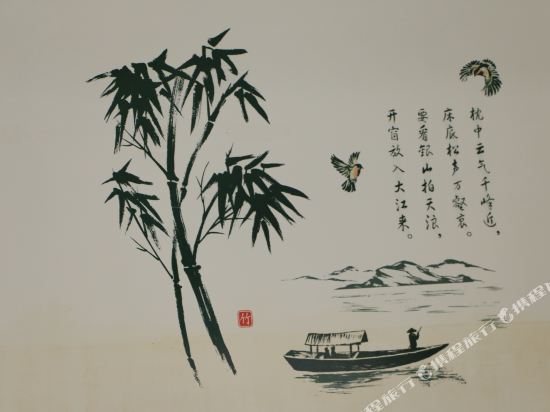 枕中云气千峰近，
床底松声万壑哀。
要看银山拍天浪，
开窗放入大江来。
竹
携程旅行
携程旅行